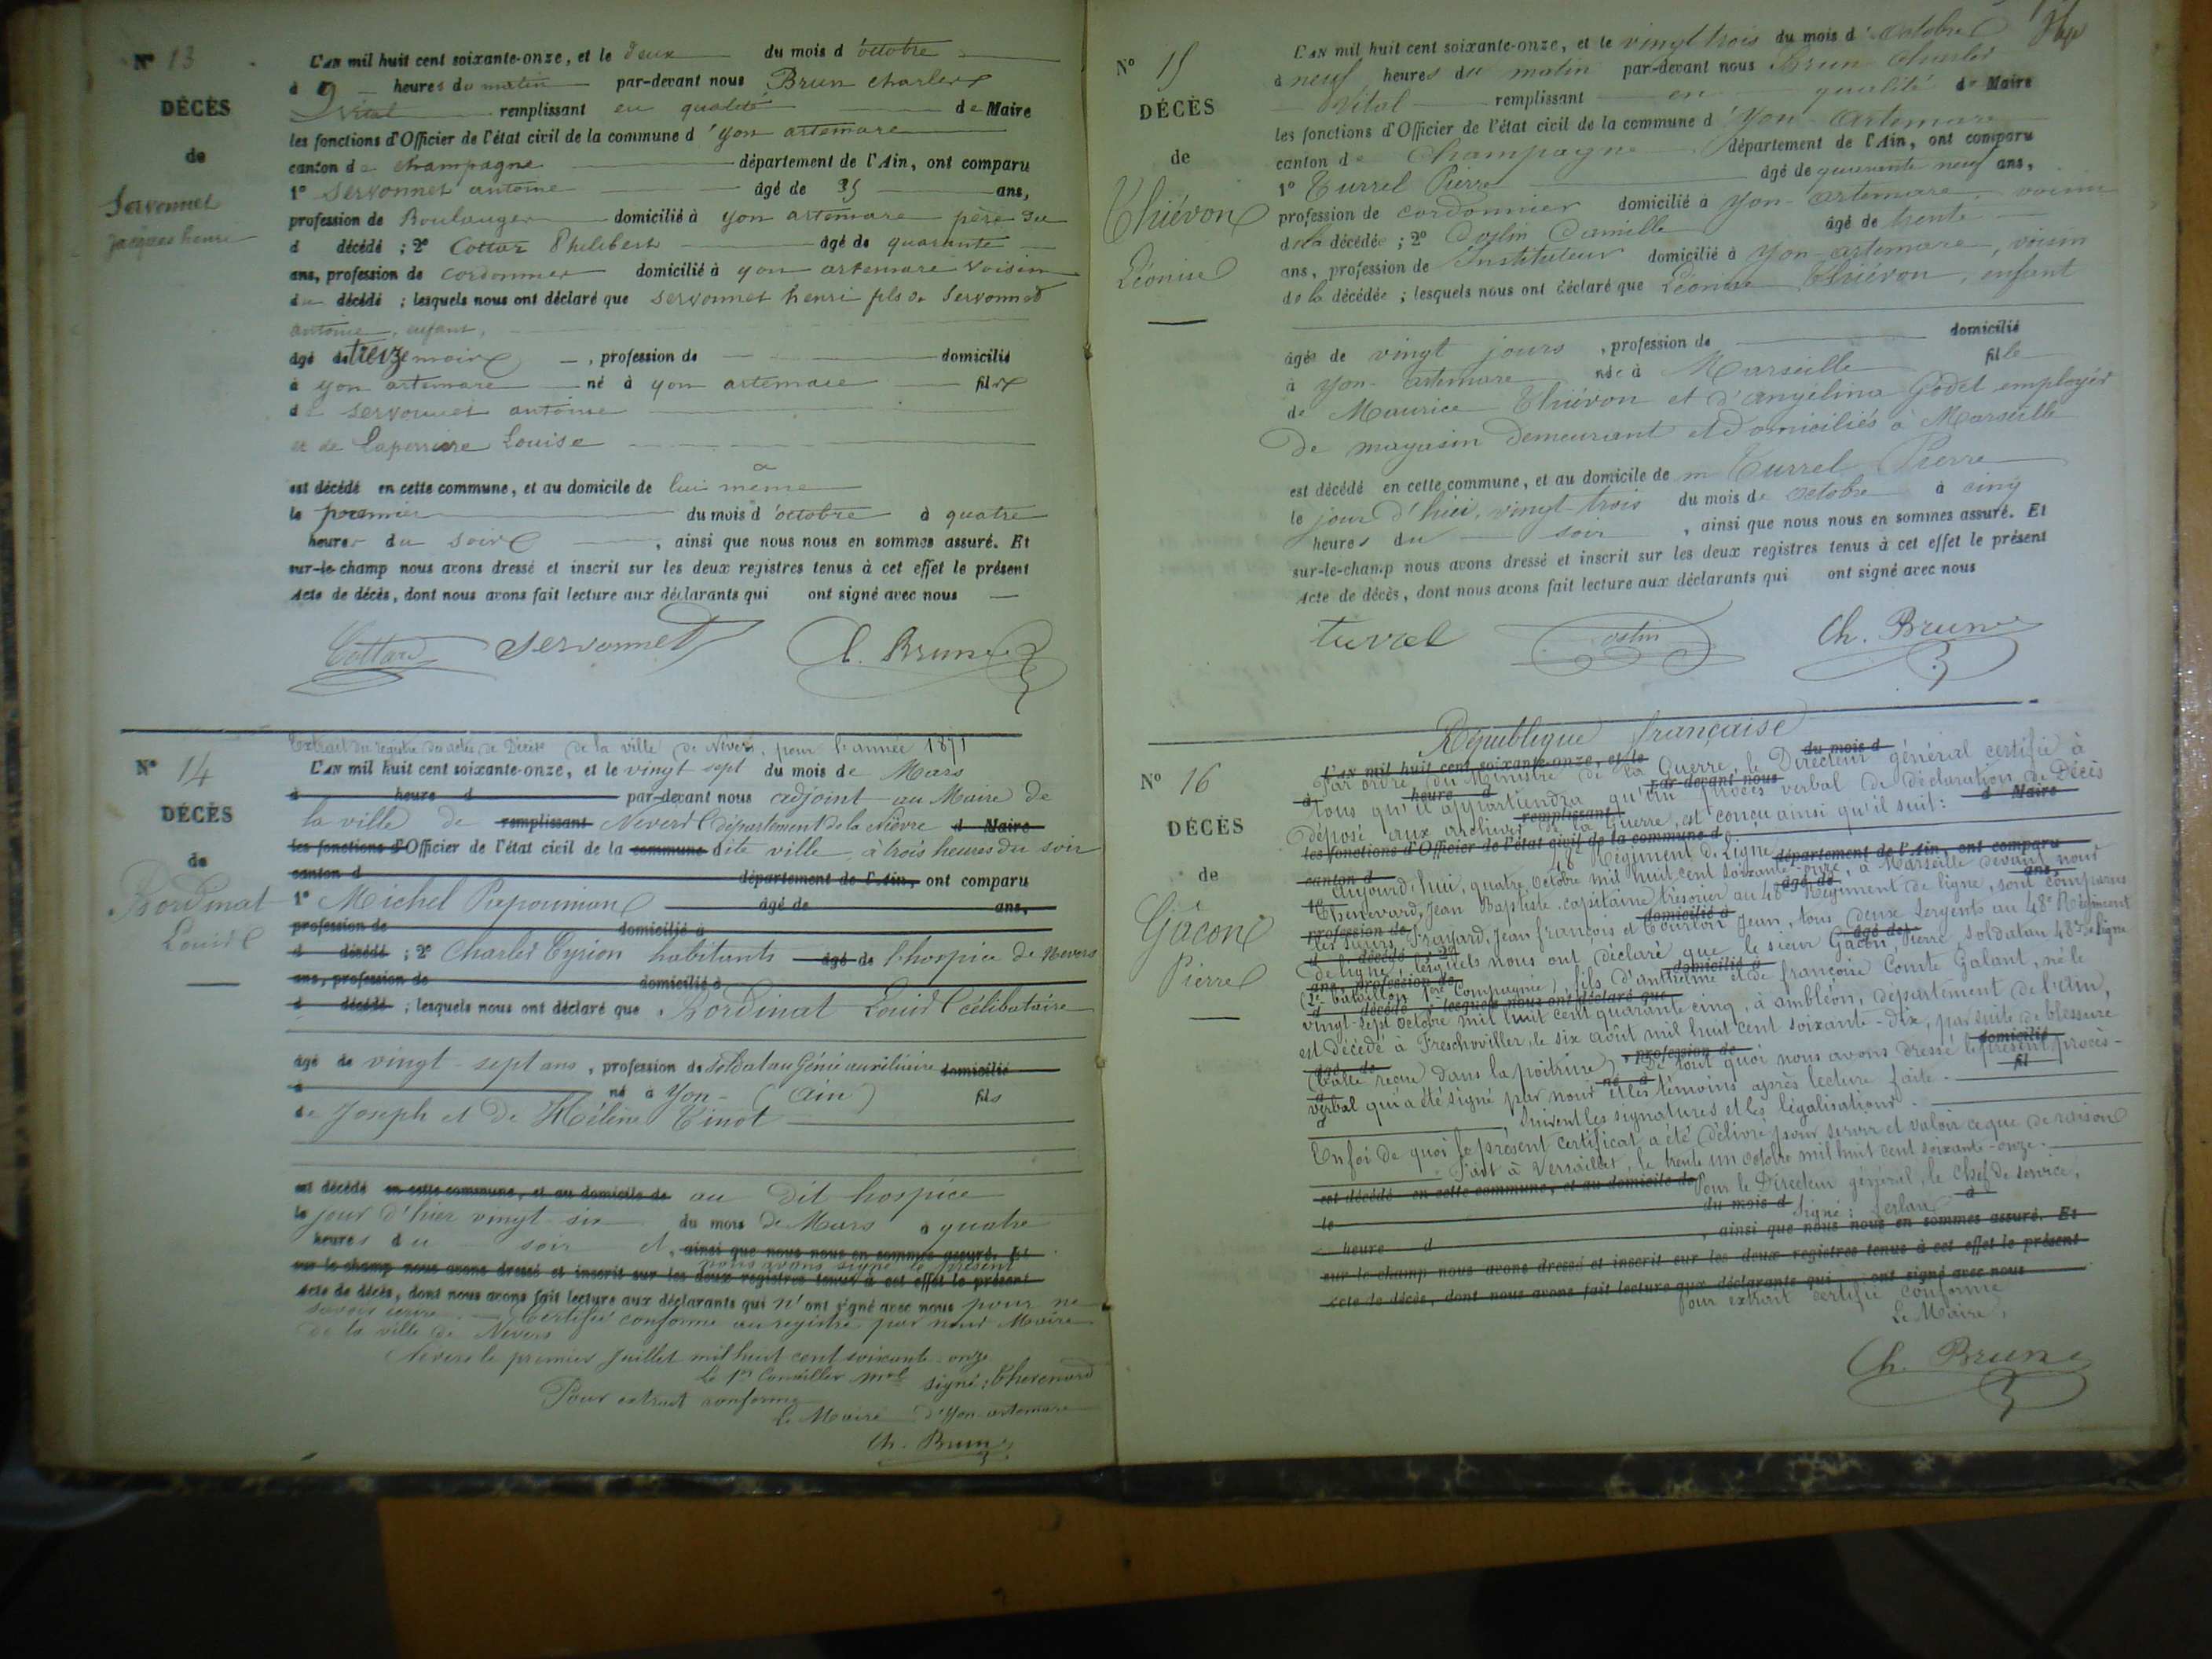 N° 13
DÉCÈS
de
Servonnet
jacques henri
L'AN mil huit cent soixante-onze, et le deux du mois d'octobre
à 9 heures du matin par-devant nous Brun charles
Vital remplissant en qualité de Maire
les fonctions d'Officier de l'état civil de la commune d'yon artemare
canton de champagne département de l'Ain, ont comparu
1° Servonnet antoine âgé de 35 ans,
profession de Boulanger domicilié à yon artemare père du
d décédé ; 2° Cottaz Philibert âgé de quarante
ans, profession de cordonnier domicilié à yon artemare voisin
du décédé ; lesquels nous ont déclaré que servonnet henri fils de Servonnet
antoine, enfant,
âgé de treize mois, profession de domicilié
à yon artemare né à yon artemare fils
de servonnet antoine
et de Laperriere Louise
est décédé en cette commune, et au domicile de lui même
le premier du mois d'octobre à quatre
heures du soir, ainsi que nous nous en sommes assuré. Et
sur-le-champ nous avons dressé et inscrit sur les deux registres tenus à cet effet le présent
Acte de décès, dont nous avons fait lecture aux déclarants qui ont signé avec nous
Cottaz Servonnet C. Brun
N° 14
DÉCÈS
de
Bordinat
Louis
Extrait du registre des actes de Décès de la ville de Nevers, pour l'année 1871
L'AN mil huit cent soixante-onze, et le vingt sept du mois de Mars
à heure d par-devant nous adjoint au Maire de
la ville de remplissant Nevers département de la Nièvre d Maire
les fonctions d'Officier de l'état civil de la commune dite ville, à trois heures du soir
canton d département de l'Ain, ont comparu
1° Michel âgé de ans,
profession de domicilié à
d décédé ; 2° Charles Cyrion habitants âgé de l'hospice de Nevers
ans, profession de domicilié à
d décédé ; lesquels nous ont déclaré que Bordinat Louis célibataire
âgé de vingt-sept ans, profession de Soldat au Génie auxiliaire domicilié
à né à Yon (Ain) fils
de Joseph et de Hélène Tinot
est décédé en cette commune, et au domicile de au dit hospice
le jour d'hier vingt six du mois de Mars à quatre
heures du soir et, ainsi que nous nous en sommes assuré. Et
nous avons signé le présent
sur-le-champ nous avons dressé et inscrit sur les deux registres tenus à cet effet le présent
Acte de décès, dont nous avons fait lecture aux déclarants qui n'ont signé avec nous pour ne
savoir écrire. Certifié conforme au registre par nous Maire
de la ville de Nevers
Nevers le premier Juillet mil huit cent soixante-onze
Le 1er Conseiller mal signé: Thevenard
Pour extrait conforme
Le Maire d'Yon-artemare
Ch. Brun
N° 15
DÉCÈS
de
Thiévon
Léonise
L'AN mil huit cent soixante-onze, et le vingt trois du mois d'octobre
à neuf heures du matin par-devant nous Brun Charles
Vital remplissant en qualité de Maire
les fonctions d'Officier de l'état civil de la commune d'Yon-Artemare
canton de Champagne département de l'Ain, ont comparu
1° Turrel Pierre âgé de quarante neuf ans,
profession de cordonnier domicilié à Yon-artemare voisin
de la décédée ; 2° Ostin Camille âgé de trente
ans, profession de Instituteur domicilié à Yon-artemare, voisin
de la décédée ; lesquels nous ont déclaré que Léonise Thiévon, enfant
âgée de vingt jours, profession de domicilié
à Yon-artemare née à Marseille fille
de Maurice Thiévon et d'angélina Godet employés
de magasin demeurant et domiciliés à Marseille
est décédé en cette commune, et au domicile de m Turrel Pierre
le jour d'hier, vingt-trois du mois de octobre à cinq
heures du soir, ainsi que nous nous en sommes assuré. Et
sur-le-champ nous avons dressé et inscrit sur les deux registres tenus à cet effet le présent
Acte de décès, dont nous avons fait lecture aux déclarants qui ont signé avec nous
turrel ostin Ch. Brun
N° 16
DÉCÈS
de
Gâcon
Pierre
République française
L'AN mil huit cent soixante-onze, et le du mois d
Par ordre du Ministre de la Guerre, le Directeur général certifie à
à heure d par-devant nous
tous qu'il appartiendra qu'un procès verbal de déclaration de Décès
remplissant d Maire
déposé aux archives de la Guerre, est conçu ainsi qu'il suit:
les fonctions d'Officier de l'état civil de la commune d
48e Régiment de Ligne
canton d département de l'Ain, ont comparu
Aujourd'hui, quatre Octobre mil huit cent soixante-onze, à Marseille devant nous
1° âgé de ans,
Thenevard, Jean Baptiste, capitaine trésorier au 48e Régiment de ligne, sont comparus
profession de domicilié à
les sieurs Frayard, Jean françois et Courton Jean, tous deux Sergents au 48e Régiment
d décédé ; 2° âgé de
de ligne, lesquels nous ont déclaré que le sieur Gâcon, Pierre, soldat au 48e de ligne
ans, profession de domicilié à
(2e bataillon 1ere Compagnie), fils d'anthelme et de françoise Comte Galant, né le
d décédé ; lesquels nous ont déclaré que
vingt-sept octobre mil huit cent quarante cinq, à ambléon, département de l'ain,
est décédé à Freschwiller, le six août mil huit cent soixante-dix, par suite de blessure
âgé de, profession de domicilié
(balle reçue dans la poitrine), De tout quoi nous avons dressé le présent procès-
à né à fil
verbal qui a été signé par nous et les témoins après lecture faite.
Suivent les signatures et les légalisations.
En foi de quoi le présent certificat a été délivré pour servir et valoir ce que de raison
Fait à Versailles, le trente un octobre mil huit cent soixante-onze.
est décédé en cette commune, et au domicile de Pour le Directeur général, le Chef de service,
le du mois d Signé: à
heure d, ainsi que nous nous en sommes assuré. Et
sur-le-champ nous avons dressé et inscrit sur les deux registres tenus à cet effet le présent
Acte de décès, dont nous avons fait lecture aux déclarants qui ont signé avec nous
Pour extrait certifié conforme
Le Maire,
Ch. Brun